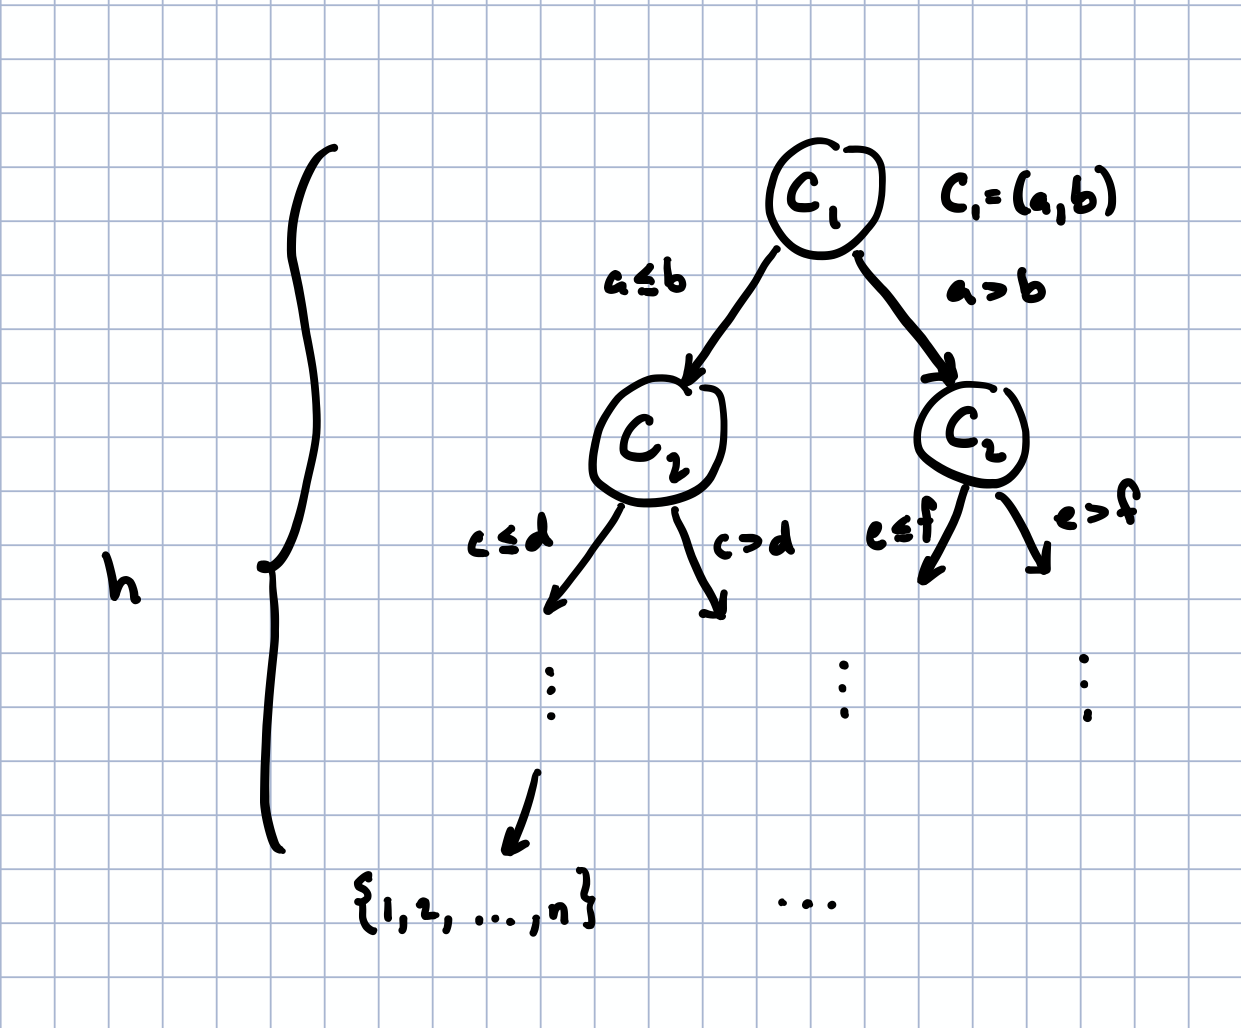 C₁ C₁=(a,b)
a≤b a>b
C₂ C₂
c≤d c>d e≤f e>f
h
⋮ ⋮ ⋮
{1,2,...,n} ...